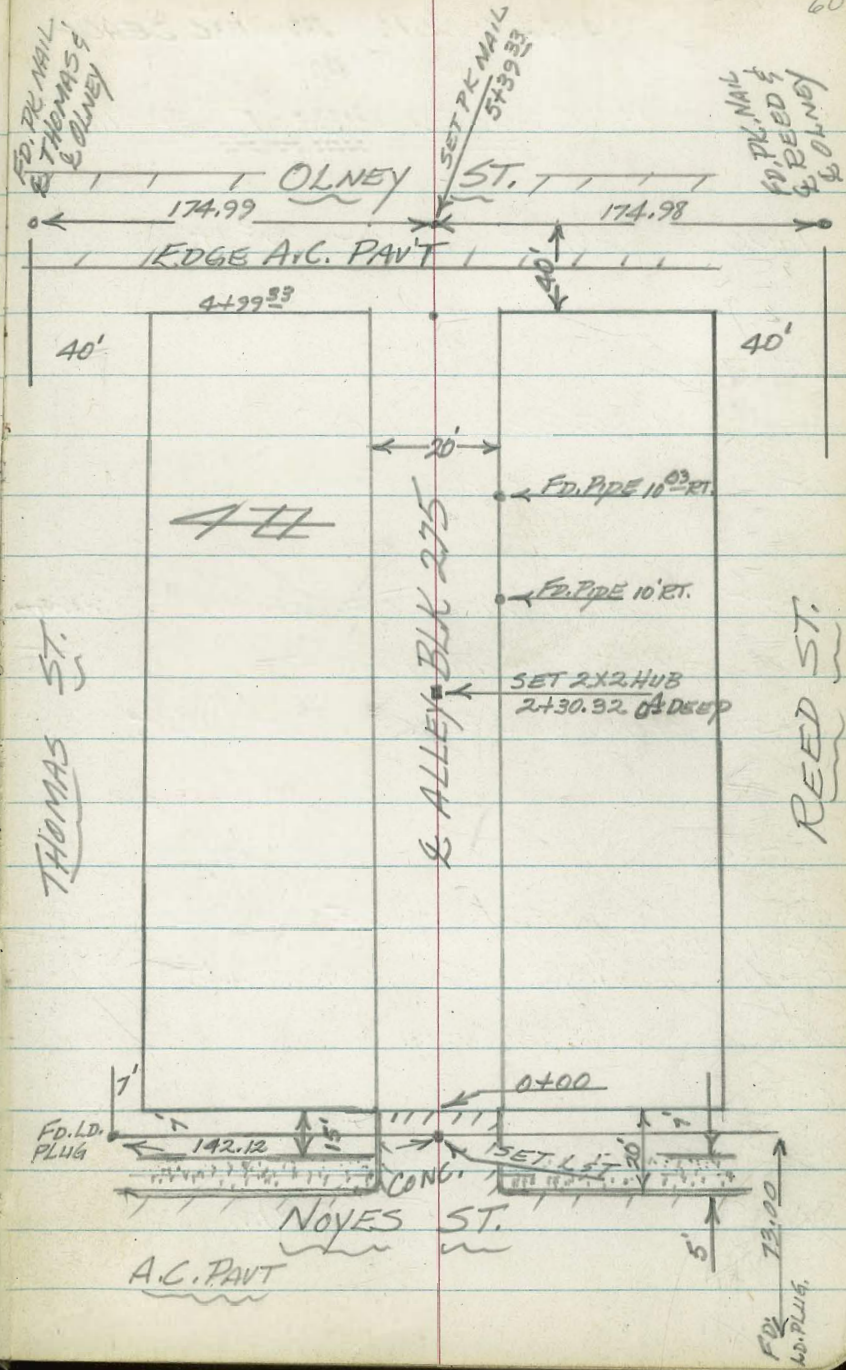 60
FD. PK NAIL
℄ THOMAS &
℄ OLNEY
SET PK NAIL
5+39.33
FD. PK. NAIL
℄ REED &
℄ OLNEY
OLNEY ST.
174.99
174.98
EDGE A.C. PAV'T
40'
4+99.33
40'
40'
20'
FD. PIPE 10.03 RT.
FD. PIPE 10' RT.
SET 2X2 HUB
2+30.32 DEEP
℄ ALLEY BLK 275
THOMAS ST.
REED ST.
0+00
7'
FD. LD.
PLUG
7'
142.12
15'
SET L&T
20'
7'
CONC.
NOYES ST.
5'
73.00
FD.
LD. PLUG.
A.C. PAVT